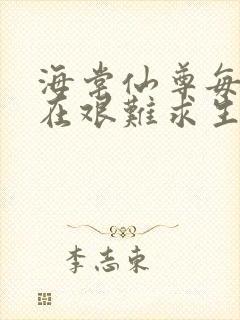 海棠仙尊每
在艰難求生
李志東